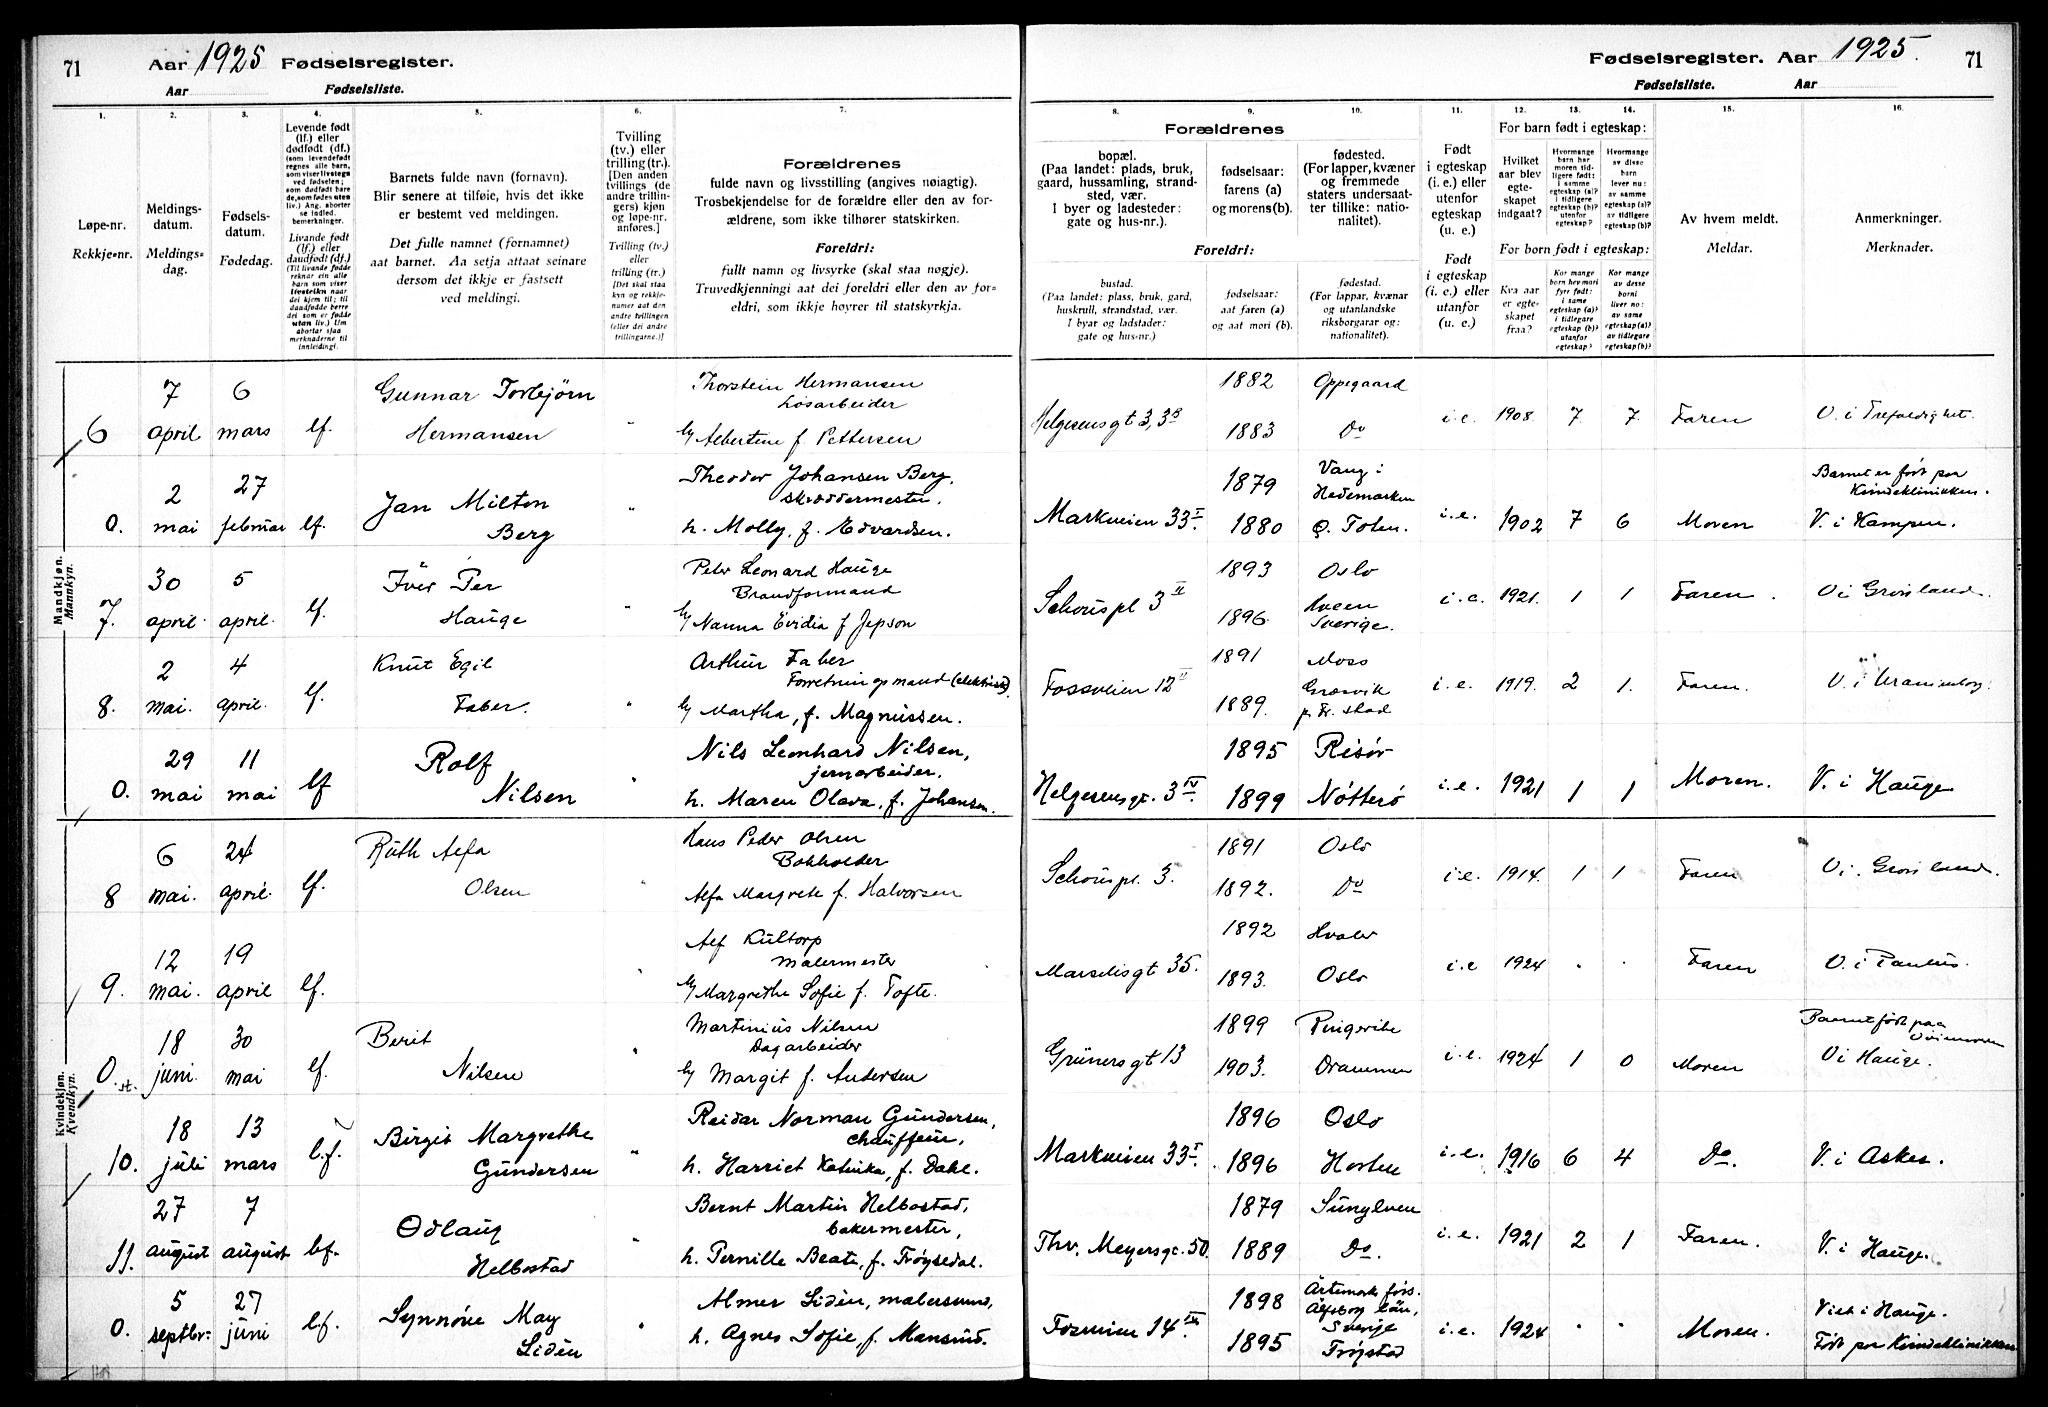 71 Aar 1925 Fødselsregister.
Aar Fødselsliste.
Fødselsregister. Aar 1925. 71
Fødselsliste. Aar
1. 2. 3. 4. 5. 6. 7.
Løpe-nr.
Rekkje-nr.
Meldings-
datum.
Meldings-
dag.
Fødsels-
datum.
Fødedag.
Levende født
(lf.) eller
dødfødt (df.)
(som levendefødt
regnes alle barn,
som viser livstegn
ved fødselen;
som dødfødt bare
de, som fødes uten
liv.) Ang. aborter
se indled.
bemerkninger.
Livande født
(lf.) eller
daudfødt (df.)
(Til livande fødde
reknar ein alle
barn som viser
livsteikn naar
dei kjem til; til
daudfødde berre
dei som er fødde
utan liv.) Um
abortar sjaa
merknaderne til
innleidingi.
Barnets fulde navn (fornavn).
Blir senere at tilføie, hvis det ikke
er bestemt ved meldingen.
Det fulle namnet (fornamnet)
aat barnet. Aa setja attaat seinare
dersom det ikkje er fastsett
ved meldingi.
Tvilling
(tv.) eller
trilling (tr.).
[Den anden
tvillings (de
andre trillin-
gers) kjøn
og løpe-nr.
anføres.]
Tvilling (tv.)
eller
trilling (tr.)
[Det skal staa
kyn og rekkje-
numer aat den
andre tvillingen
(eller dei andre
trillingarne.)]
Forældrenes
fulde navn og livsstilling (angives nøiagtig).
Trosbekjendelse for de forældre eller den av for-
ældrene, som ikke tilhører statskirken.
Foreldri:
fullt namn og livsyrke (skal staa nøgje).
Truvedkjenningi aat dei foreldri eller den av for-
eldri, som ikkje høyrer til statskyrkja.
8. 9. 10. 11. 12. 13. 14. 15. 16.
Forældrenes
bopæl.
(Paa landet: plads, bruk,
gaard, hussamling, strand-
sted, vær.
I byer og ladesteder:
gate og hus-nr.).
fødselsaar:
farens (a)
og morens (b).
fødested.
(For lapper, kvæner
og fremmede
staters undersaat-
ter tillike: natio-
nalitet).
Foreldri:
bustad.
(Paa landet: plass, bruk, gard,
huskrull, strandstad, vær.
I byar og ladstader:
gate og hus-nr.)
fødselsaar:
aat faren (a)
og aat mori (b).
fødestad.
(For lappar, kvænar
og utanlandske
riksborgarar og:
nationalitet).
Født
i egteskap
(i. e.) eller
utenfor
egteskap
(u. e.)
Født
i egteskap
(i. e.) eller
utanfor
(u. e.)
For barn født i egteskap:
Hvilket
aar blev
egte-
skapet
indgaat?
Hvormange
barn har
moren tid-
ligere født:
i samme
egteskap (a)?
i tidligere
egteskap (b)?
utenfor
egteskap?
Hvormange
av disse
barn
lever nu:
av samme
egteskap (a)?
av tidligere
egteskap (b)?
For born født i egteskap:
Kva aar
er egte-
skapet
fraa?
Kor mange
born hev mori
fyrr født:
i same
egteskap (a)?
i tidlegare
egteskap (b)?
utanfor
egteskap?
Kor mange
av desse
borni
liver no:
av same
egteskap (a)?
av tidlegare
egteskap (b)?
Av hvem meldt.
Meldar.
Anmerkninger.
Merknader.
Mandkjøn.
Mannkyn.
6 7 april 6 mars lf. Gunnar Torbjørn Hermansen " Thorstein Hermansen Løsarbeider
Albertine f. Pettersen
Helgesensgt 3, 1882 1883 Oppegaard Do i.e. 1908. 7 7. Faren V. i Trefoldighet.
0. 2 mai 27 februar lf. Jan Milton Berg " Theodor Johansen Berg, skræddermester.
h. Molly, f. Edvardsen.
Markveien 33 I. 1879 1880 Vang i Hedemarken Ø. Toten. i.e. 1902 7 6 Moren Barnet er født paa Kvindeklinikken.
V. i Kampen.
7. 30 april 5 april lf. Iver Per Hauge " Peter Leonard Hauge Brandformand
Nanna Evidia f Jepson
Schouspl 3 II 1893 1896. Oslo Hveen Sverige. i.e. 1921. 1 1 Faren. V i Grønland.
8. 2 mai. 4 april. lf. Knut Egil Faber. " Arthur Faber Forretningsmand
Martha, f. Magnussen.
Fossveien 12 II 1891 1889. Moss Græsvik p. Fr. stad i.e. 1919. 2 1. Faren. V. i Uranienborg.
0. 29 mai 11 mai lf Rolf Nilsen " Nils Leonhard Nilsen, jernarbeider.
h. Maren Olava, f. Johansen.
Helgesensgt. 3 IV. 1895 1899 Risør Nøtterø i.e. 1921 1 1 Moren. V. i Hauge
Kvindekjøn.
Kvendkyn.
8 6 mai. 24 april. lf. Ruth Alfa Olsen " Hans Peder Olsen Bokholder
Alfa Margrete f. Halvorsen
Schouspl. 3. 1891 1892. Oslo Do i.e. 1914. 1 1 Faren V i. Grønland.
9. 12 mai. 19 april lf. " Alf Kultorp Malermester
Margrethe Sofie f. Tofte.
Marselisgt 35. 1892 1893. Hvaler Oslo i.e 1924 . . Faren V. i Paulus.
0. st. 18 juni. 30 mai lf. Berit Nilsen " Martinius Nilsen Dagarbeider
Margit f. Andersen
Grünersgt 13 1899 1903. Ringerike Drammen i.e. 1924 1 0 Moren Barnet født paa
V i Hauge.
10. 18 juli 13 mars l.f. Birgit Margrethe Gundersen " Reidar Norman Gundersen, chauffeur,
h. Harriet Katinka, f. Dahl.
Markveien 33 I. 1896 1896 Oslo Horten i.e. 1916 6 4 Do. V. i Asker.
11. 27 august 7 august l.f. Odlaug Helbostad " Bernt Martin Helbostad, bakermester,
h. Pernille Beate, f. Frøysedal.
Thv. Meyersgt. 50. 1879 1889 Sunylven Do. i.e. 1921 2 1 Faren. V. i Hauge.
0. 5 septbr: 27 juni l.f. Synnøve May Lidén " Almer Lidén, malersvend,
h. Agnes Sofie, f. Mansrud.
Fossveien 14 III. 1898 1895 Ärtemark förs. Älfsborg län, Sverige Trøgstad i.e. 1924 " " Moren. Viet i Hauge.
Født paa Kvindeklinikken